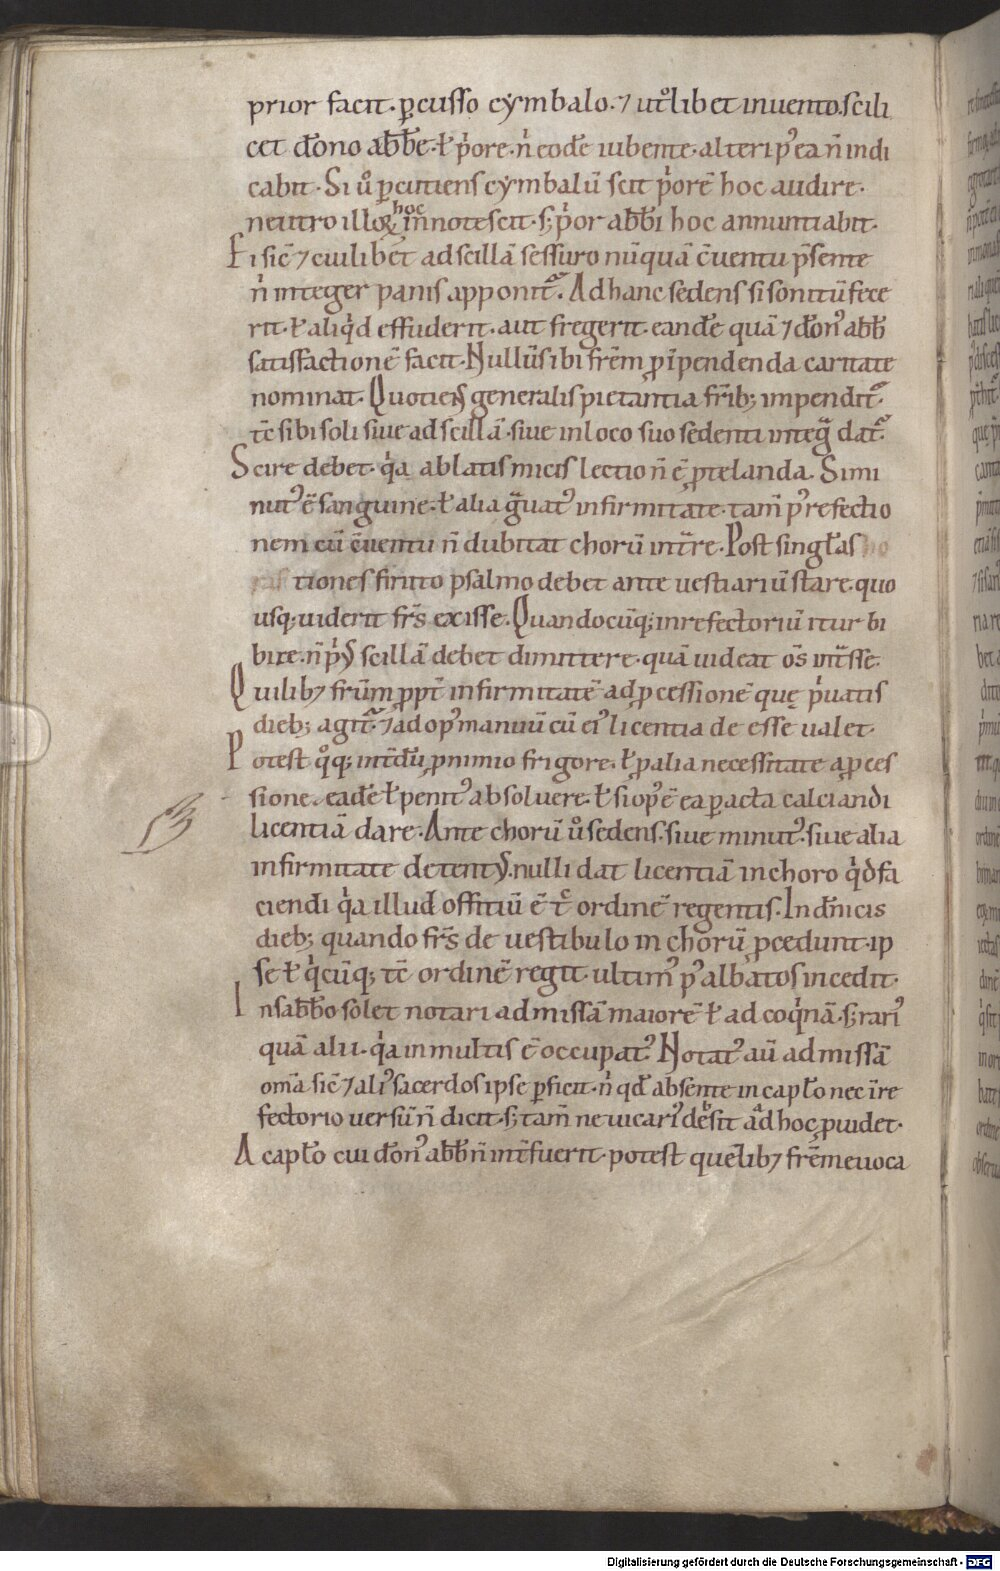 prior facit· ꝑcusso cẏmbalo· ⁊ ut͛libet inuento· scili
cet dōno abb̄e· ł p̍ore· n̄ eodē iubente· alteri pꝰea n̄ indi
cabit· Si u͛o ꝑcutiens cẏmbalū scit p̍orē hoc audire·
neutro illoꝝ hoc innotescit· s; p̍or abb̄i hoc annuntiabit·
Ei sic̄ ⁊ cuilibet ad scillā sessuro nūquā c̄uentu p̄sente
n̄ integer panis apponit᷑· Ad hanc sedens si sonitū fece
rit· ł aliq̍d effuderit· aut fregerit· eandē quā ⁊ dōnꝰ abb̄
satisfactionē facit· Nullū sibi frēm ꝓ īpendenda caritate
nominat· Quotiens generalis pietantia frīb; impendit᷑·
tc̄ sibi soli siue ad scillā· siue in loco suo sedenti inteḡ dat᷑·
Scire debet· q̍a ablatis micis lectio n̄ ē ꝓtelanda· Si mi
nutꝰ ē sanguine· ł alia ḡuatꝰ infirmitate· tam̄ pꝰ refectio
nem cū c̄uentu n̄ dubitat chorū int̄re· Post singłas
tiones finito psalmo debet ante uestiariū stare· quo
usq; uiderit frs̄ exisse· Quandocūq; in refectoriū itur bi
bire· n̄ p̍us scillā debet dimittere· quā uideat os̄ int̄sse·
Quilib; frūm ꝓpt̄ infirmitatē ad ꝓcessionē quę p̍uatis
dieb; agit᷑· ⁊ ad opꝰ manuū cū eiꝰ licentia de esse ualet·
Potest q͛q; int̄dū ꝓ nimio frigore· ł ꝓ alia necessitate a ꝓces
sione· eadē ł penitꝰ absoluere· ł si opꝰ ē ea ꝑacta calciandi
licentiā dare· Ante chorū u͛o sedens· siue minutꝰ· siue alia
infirmitate detentus· nulli dat licentiā in choro q̍d fa
ciendi q̍a illud offitiū ē tc̄ ordinē regentis· In dn̄icis
dieb; quando frs̄ de uestibulo in chorū ꝓcedunt· ip
se ł q̍cūq; tc̄ ordinē regit· ultimꝰ pꝰ albatos incedit·
In sabb̄o solet notari ad missā maiorē ł ad coq̍nā· s; rariꝰ
quā alii· q̍a in multis ē occupatꝰ· Notatꝰ aū ad missā
omā sic̄ ⁊ aliꝰ sacerdos ipse ꝑficit· n̍ qd̄ absente in capło nec ī re
fectorio uersū n̄ dicit· s; tam̄ ne uicariꝰ desit ad hoc ꝓuidet·
A capło cui dōnꝰ abb̄ n̄ int̄fuerit· potest quēlib; frēm euoca